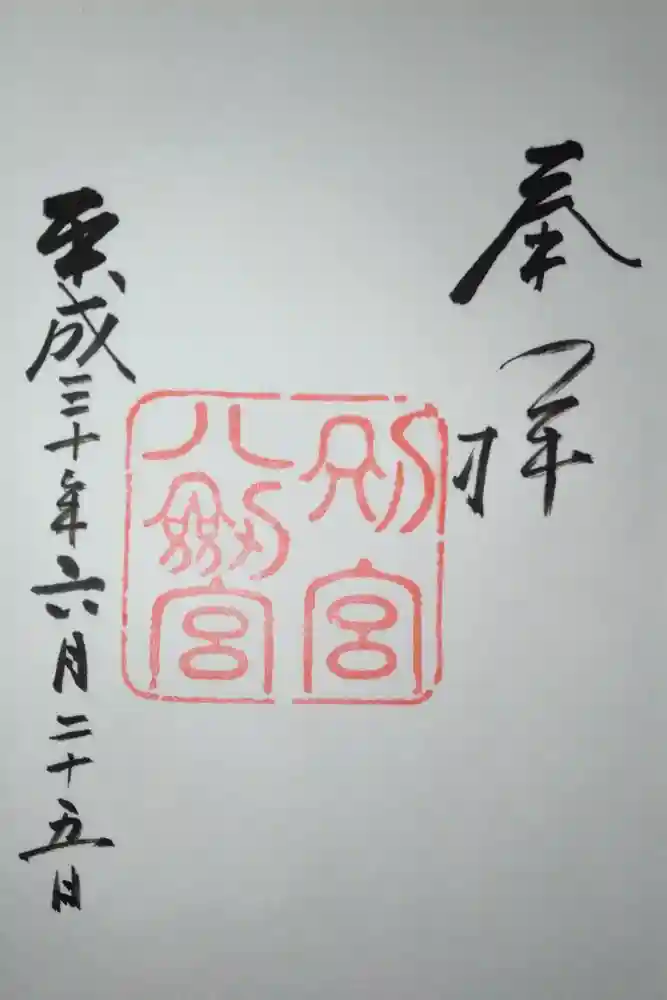 奉拝
別宮
八劔宮
平成三十年六月二十五日